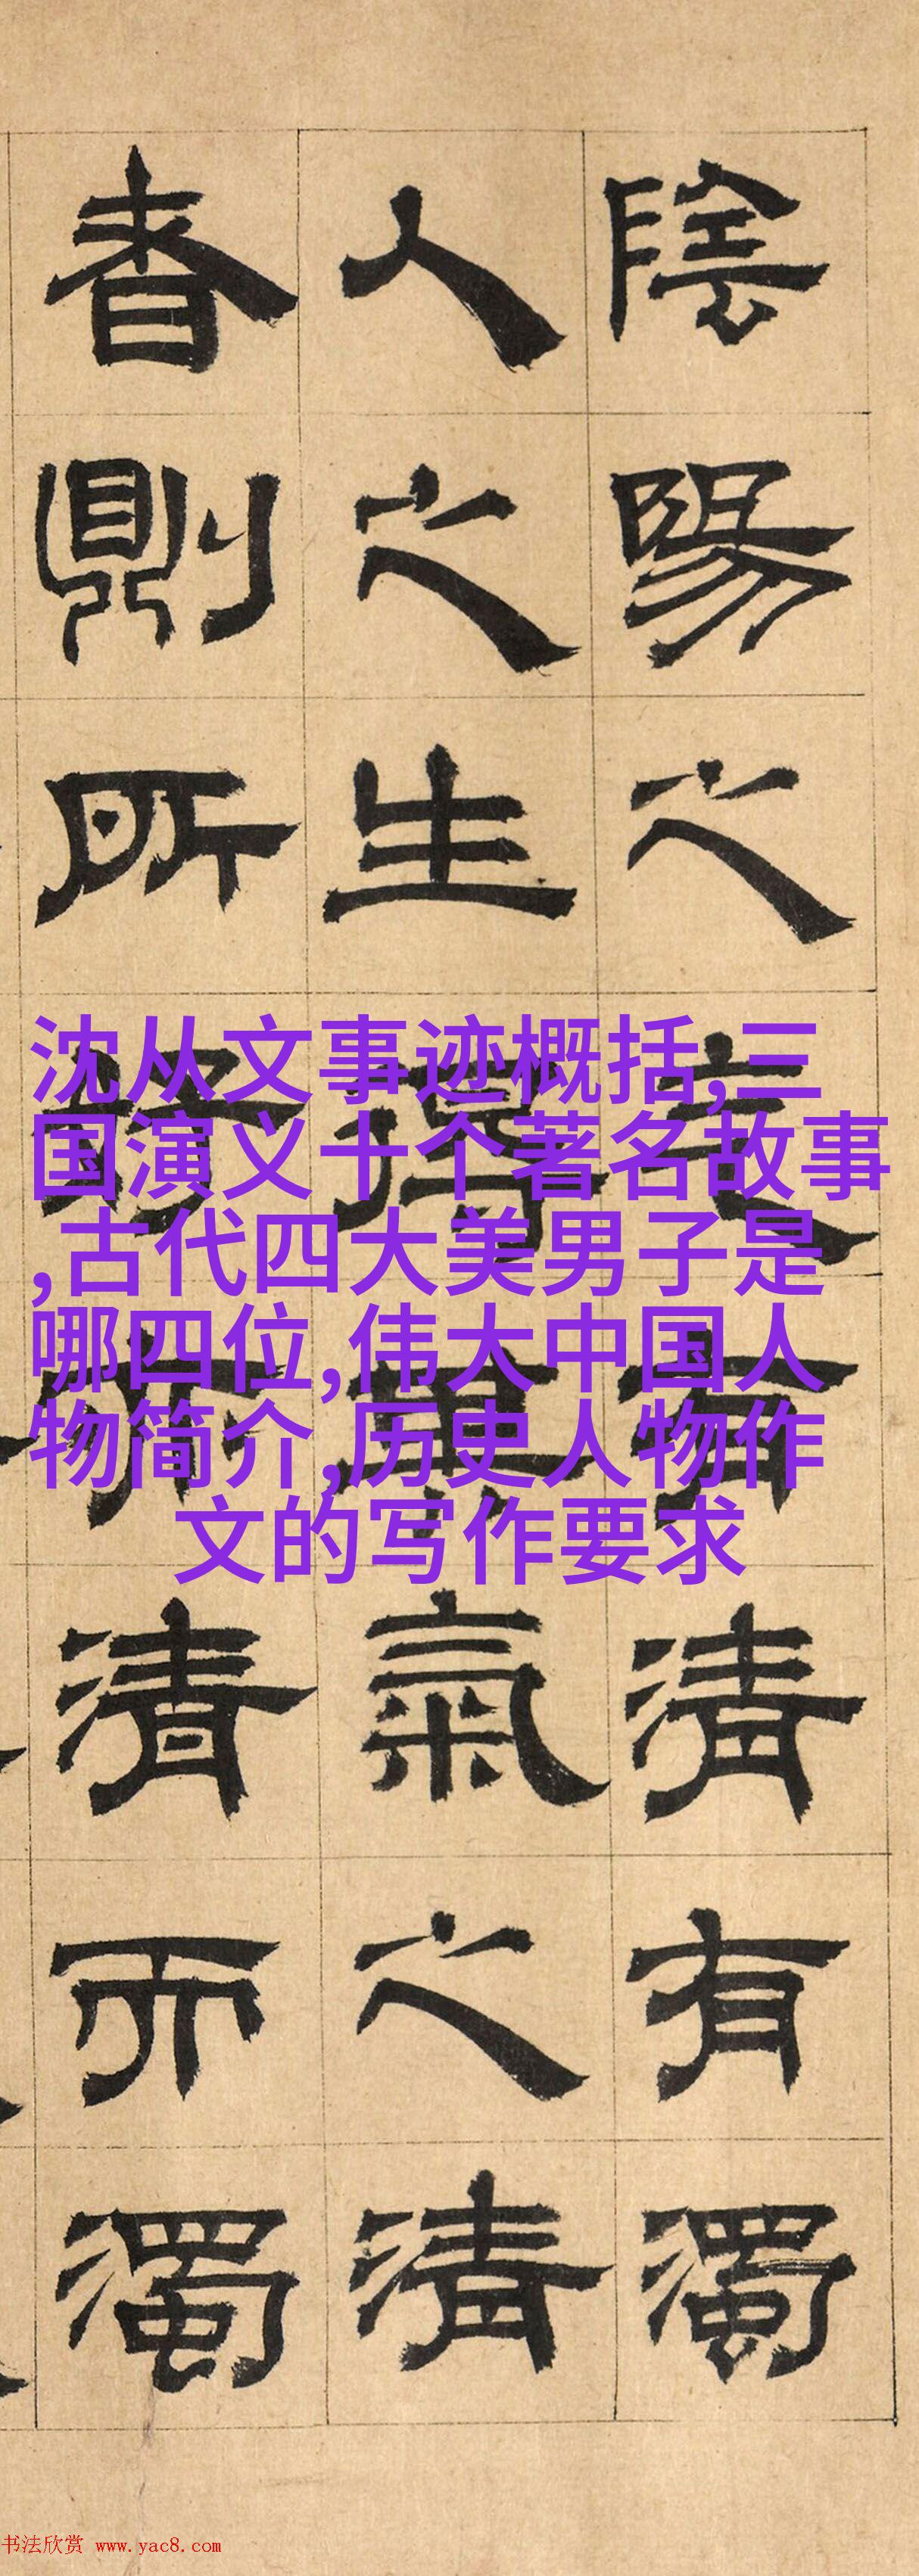 陰陽之
有清有濁
人之生
氣之清
者則所
清而濁
沈从文事迹概括,三
国演义十个著名故事
,古代四大美男子是
哪四位,伟大中国人
物简介,历史人物作
文的写作要求
书法欣赏 www.yac8.com